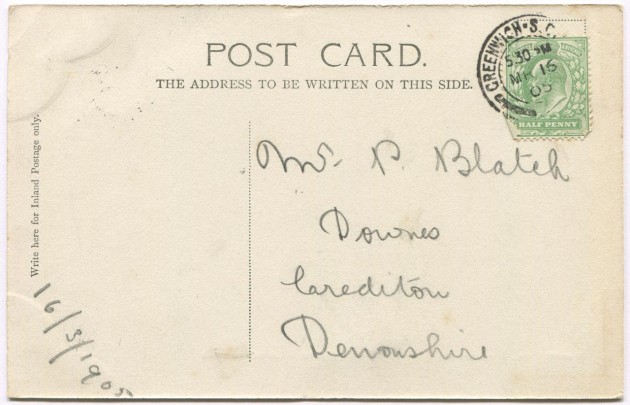 POST CARD.
THE ADDRESS TO BE WRITTEN ON THIS SIDE.
GREENWICH·S.O.
5.30 PM
MR 16
05
HALF PENNY
Write here for Inland Postage only.
16/3/1905
Mr. P. Blatch
Downes
Carediton
Devonshire